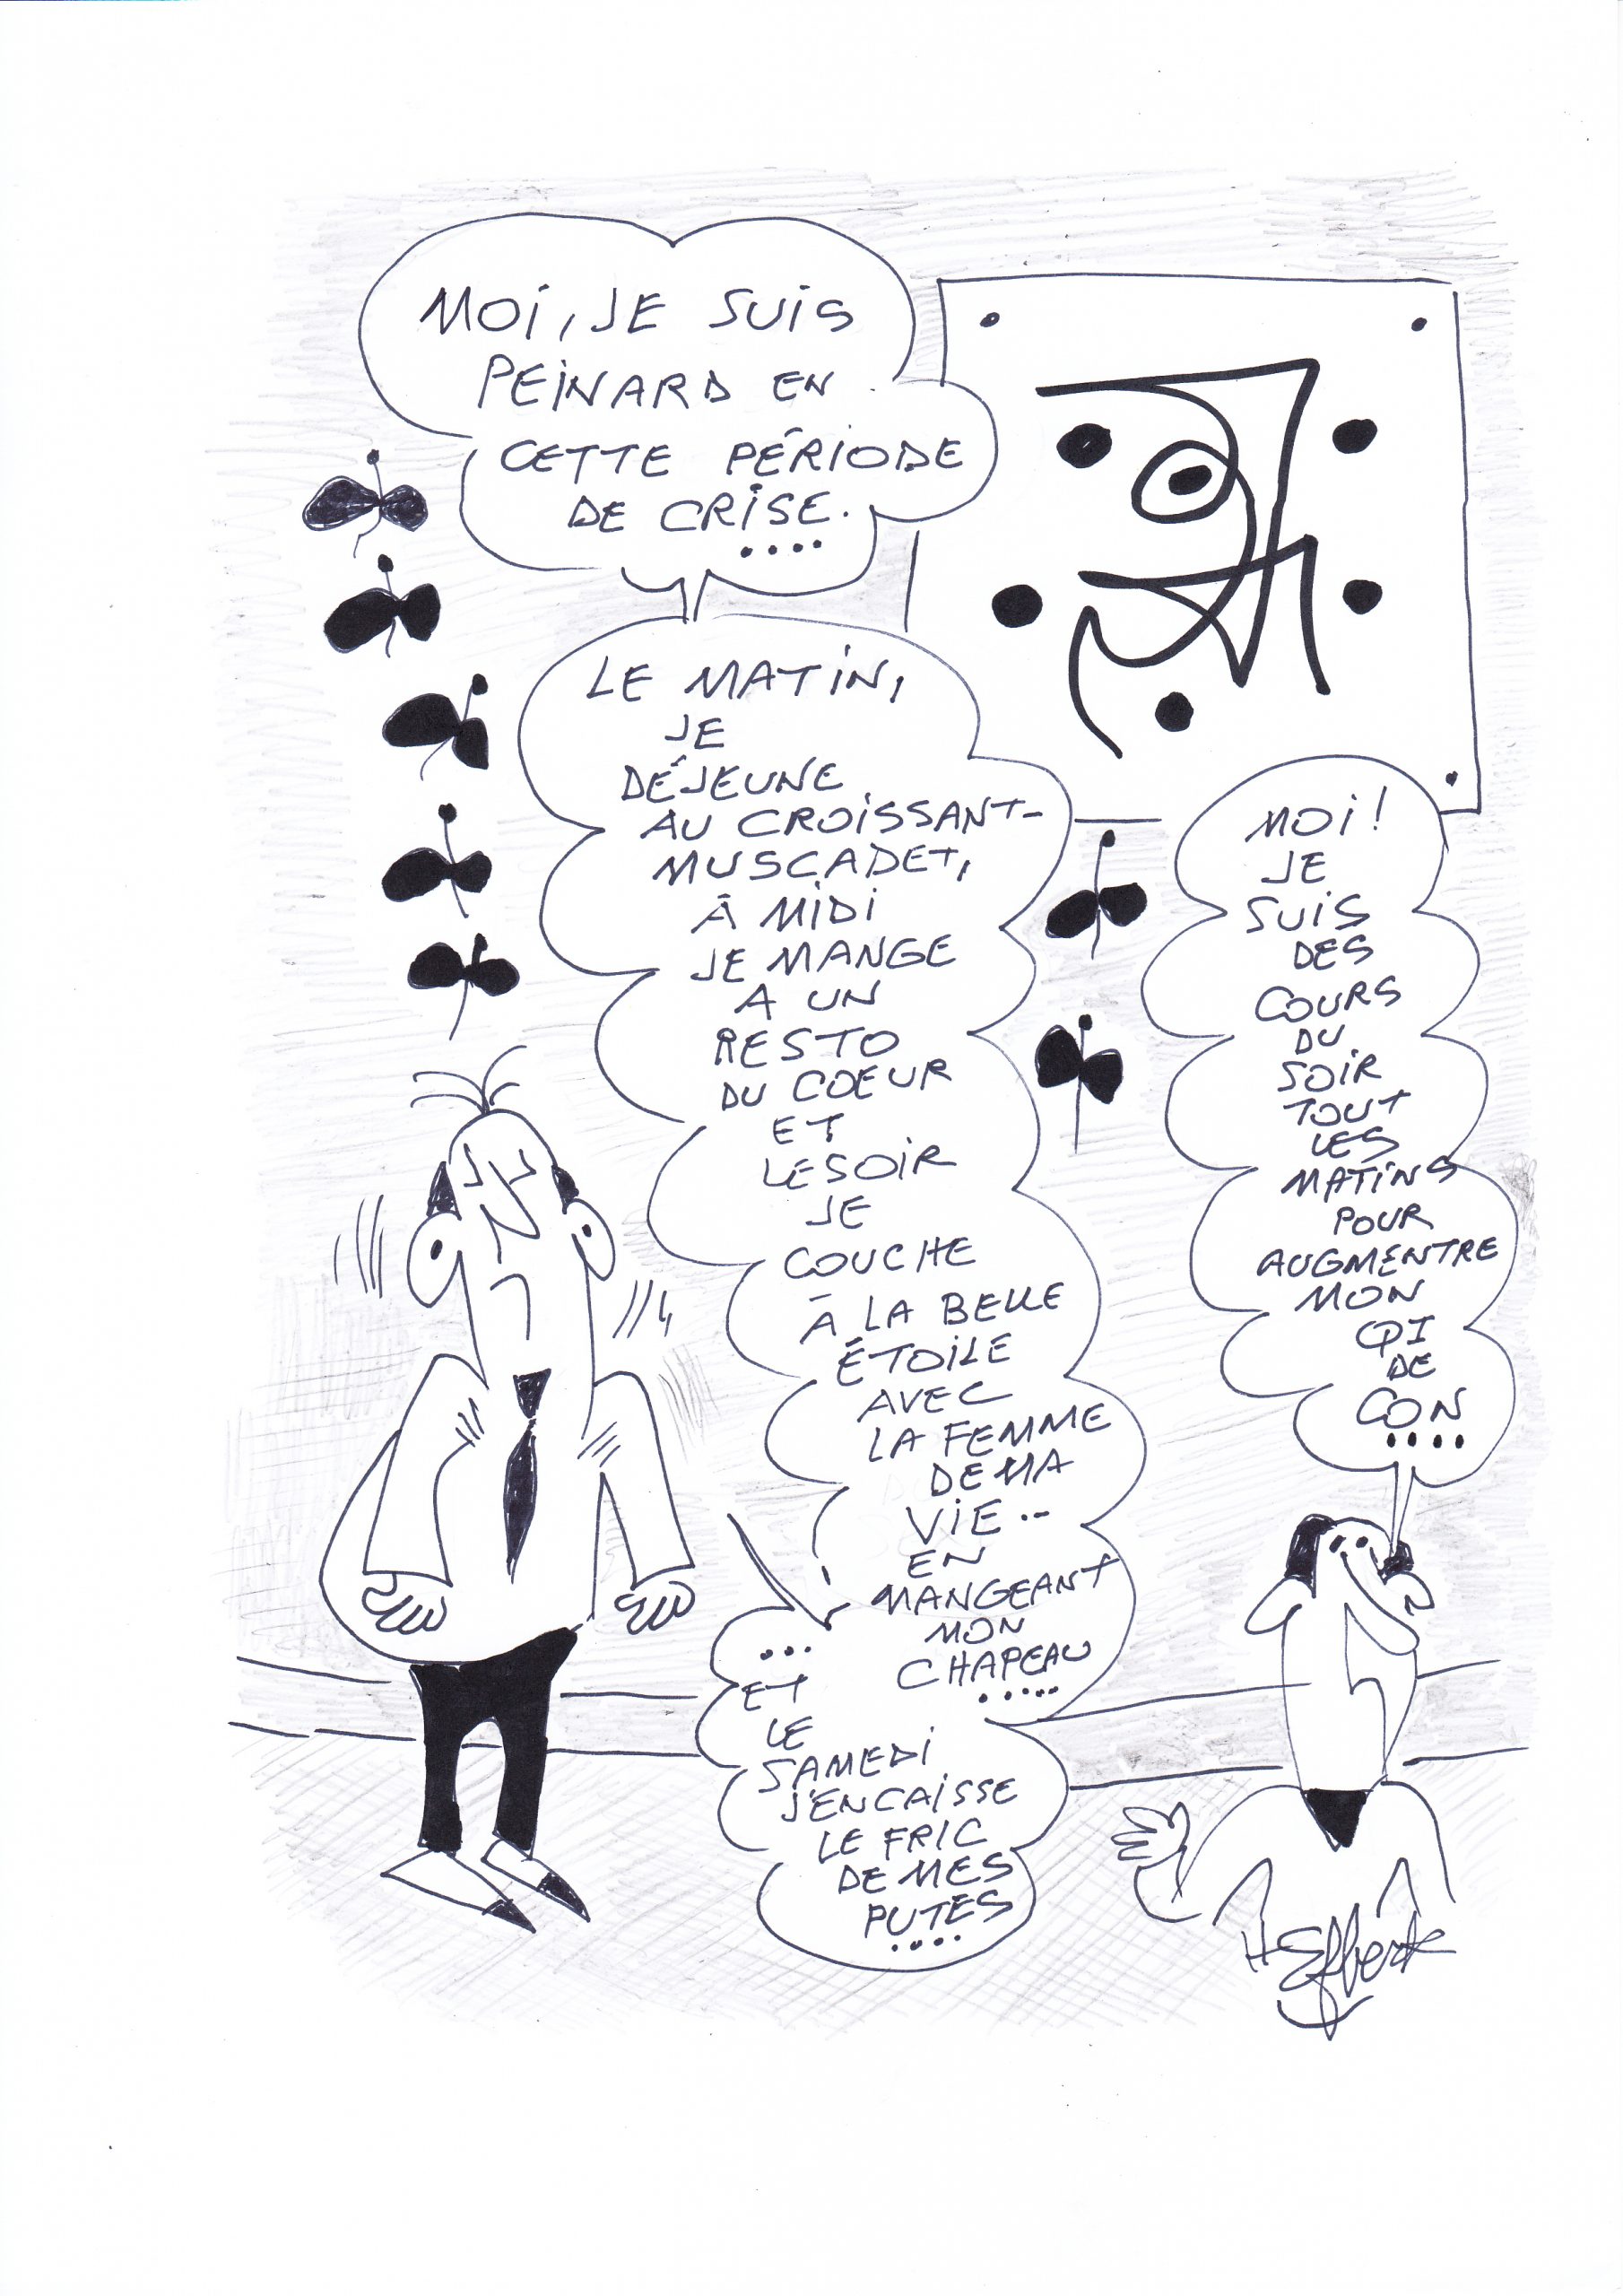 MOI, JE SUIS
PEINARD EN
CETTE PÉRIODE
DE CRISE.
....
LE MATIN,
JE
DÉJEUNE
AU CROISSANT-
MUSCADET,
À MIDI
JE MANGE
A UN
RESTO
DU COEUR
ET
LE SOIR
JE
COUCHE
À LA BELLE
ÉTOILE
AVEC
LA FEMME
DE MA
VIE..
EN
MANGEANT
MON
CHAPEAU
.....
...
ET
LE
SAMEDI
J'ENCAISSE
LE FRIC
DE MES
PUTES
....
MOI!
JE
SUIS
DES
COURS
DU
SOIR
TOUT
LES
MATINS
POUR
AUGMENTRE
MON
QI
DE
CON
....